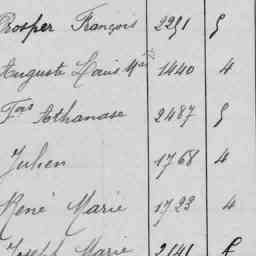 Prosper François 2251 5
Auguste Louis Mie 1440 4
Fçois Athanase 2487 5
Julien 1768 4
René Marie 1723 4
Joseph Marie 2141